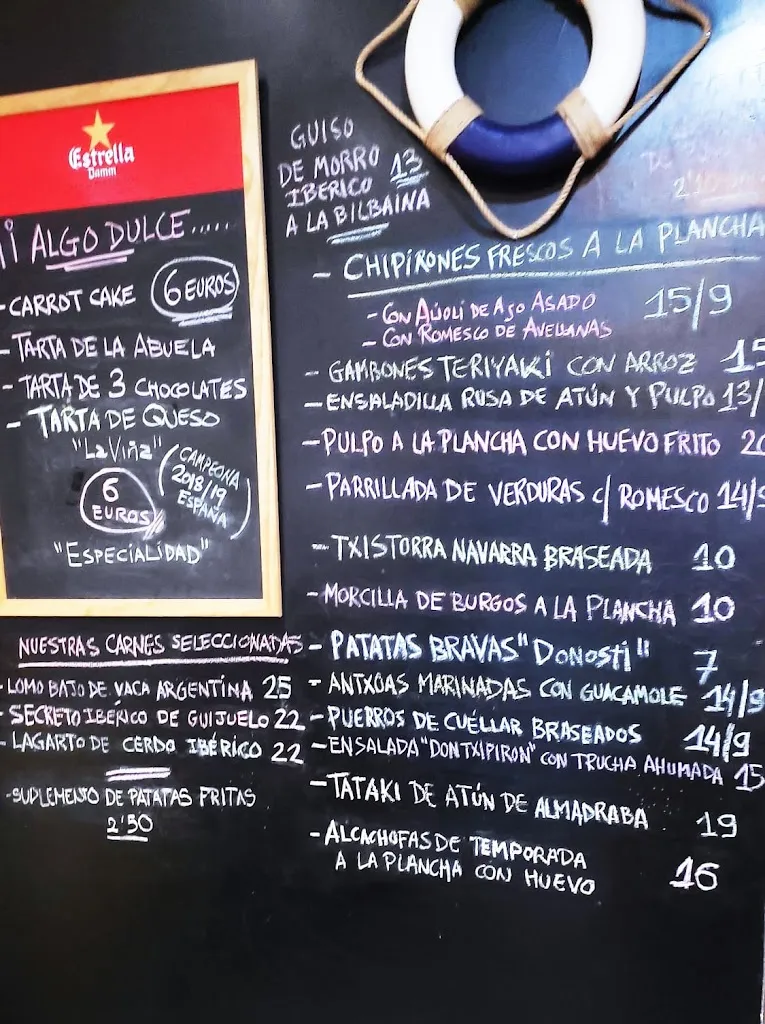 Estrella
Damm
ALGO DULCE.....
- CARROT CAKE 6 EUROS
- TARTA DE LA ABUELA
- TARTA DE 3 CHOCOLATES
- TARTA DE QUESO
"La Viña"
(CAMPEONA
2018/19
ESPAÑA)
6
EUROS
"ESPECIALIDAD"
NUESTRAS CARNES SELECCIONADAS
- LOMO BAJO DE VACA ARGENTINA 25
- SECRETO IBÉRICO DE GUIJUELO 22
- LAGARTO DE CERDO IBÉRICO 22
- SUPLEMENTO DE PATATAS FRITAS
2'50
GUISO
DE MORRO 13
IBERICO
A LA BILBAINA
- CHIPIRONES FRESCOS A LA PLANCHA
- CON ALIOLI DE AJO ASADO 15/9
- CON ROMESCO DE AVELLANAS
- GAMBONES TERIYAKI CON ARROZ 15
- ENSALADILLA RUSA DE ATÚN Y PULPO 13/
- PULPO A LA PLANCHA CON HUEVO FRITO
- PARRILLADA DE VERDURAS c/ ROMESCO 14/9
- TXISTORRA NAVARRA BRASEADA 10
- MORCILLA DE BURGOS A LA PLANCHA 10
- PATATAS BRAVAS "Donosti" 7
- ANTXOAS MARINADAS CON GUACAMOLE 14/9
- PUERROS DE CUÉLLAR BRASEADOS 14/9
- ENSALADA "DON TXIPIRON" CON TRUCHA AHUMADA 15
- TATAKI DE ATÚN DE ALMADRABA 19
- ALCACHOFAS DE TEMPORADA
A LA PLANCHA CON HUEVO 16